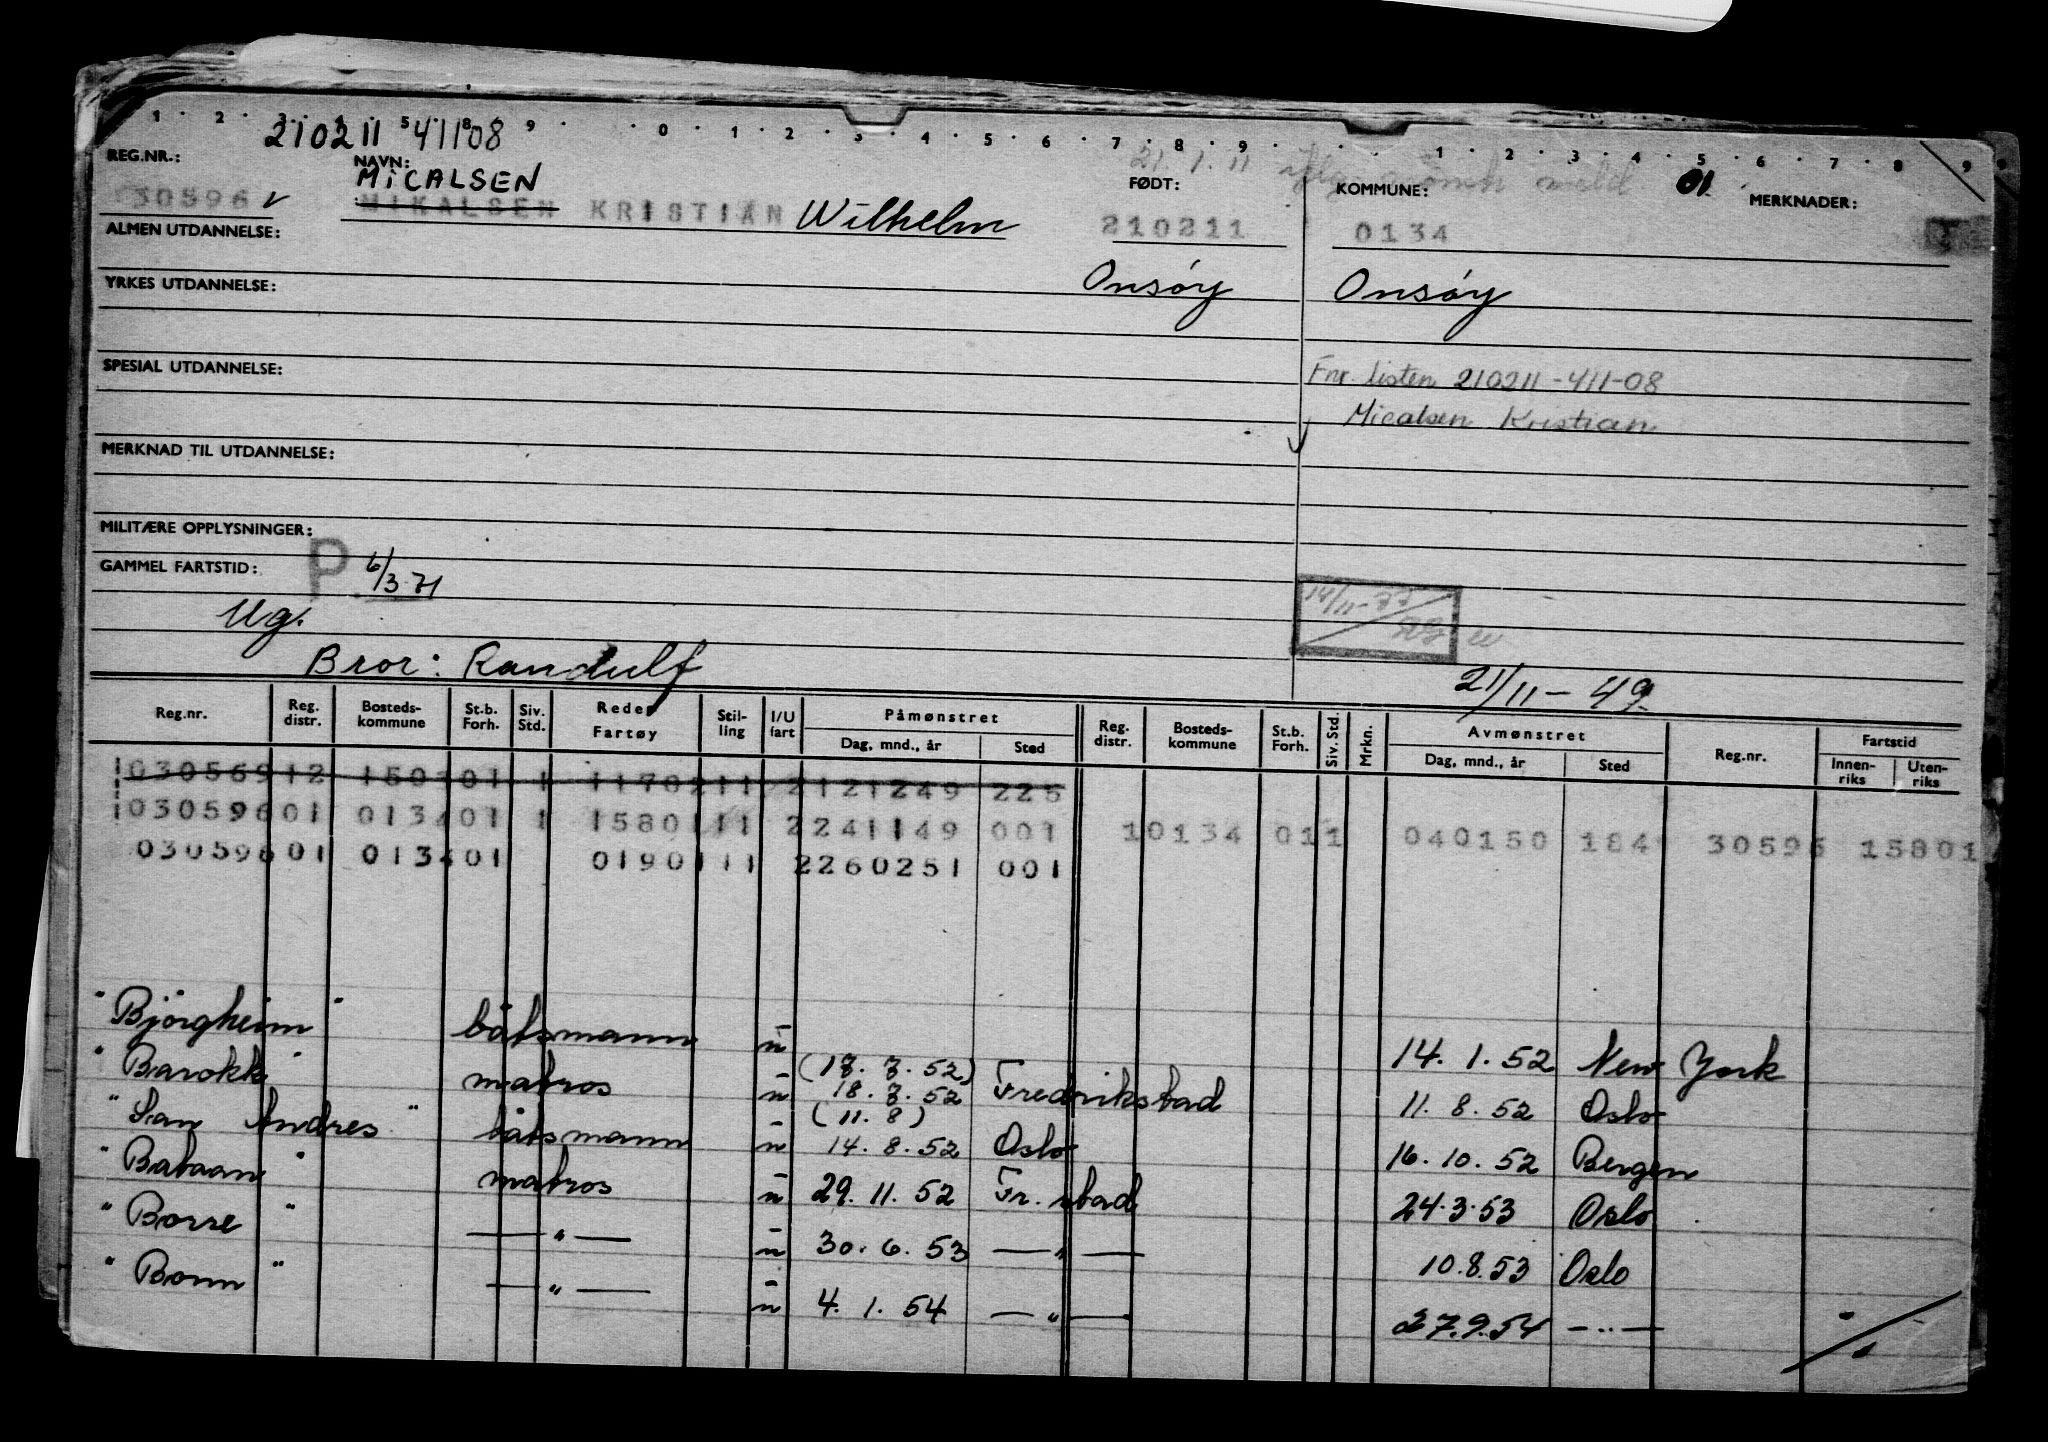 1 2 3 4 5 8 9 0 1 2 3 4 5 6 7 8 9 1 2 3 4 5 6 7 8 9
210211 41108
REG.NR.: NAVN: FØDT: 21.1.11 KOMMUNE: 01 MERKNADER:
MiCALSEN
30596 v MIKALSEN KRISTIAN Wilhelm 210211 0134
ALMEN UTDANNELSE:
YRKES UTDANNELSE: Onsøy Onsøy
SPESIAL UTDANNELSE: Fnr. listen 210211-411-08
Micalsen Kristian
MERKNAD TIL UTDANNELSE:
MILITÆRE OPPLYSNINGER:
GAMMEL FARTSTID: P 6/3-71
Ug. 14/11-77
Bror: Randulf 21/11-49
Reg.nr. Reg. distr. Bosteds-kommune St.b. Forh. Siv. Std. Reder Fartøy Stil-ling I/U fart Påmønstret Dag, mnd., år Sted Reg. distr. Bosteds-kommune St.b. Forh. Siv. Std. Mrkn. Avmønstret Dag, mnd., år Sted Reg.nr. Fartstid Innen-riks Uten-riks
103056912 150401 1 1170211 2121249 225
103059601 013401 1 1580111 2241149 001 10134 011 040150 184 30596 15801
03059601 013401 0190111 2260251 001
"Bjørgheim" båtsmann u 14. 1. 52 New York
(17. 7. 52)
"Barokk" matros u 18. 7. 52 Fredrikstad 11. 8. 52 Oslo
(11. 8)
"San Andres" båtsmann u 14. 8. 52 Oslo 16. 10. 52 Bergen
"Bataan" matros u 29. 11. 52 Fr. stad 24.3.53 Oslo
"Borre" — " — u 30. 6. 53 — " — 10.8.53 Oslo
"Bonn" — " — u 4. 1. 54 — " — 27.9.54 — " —